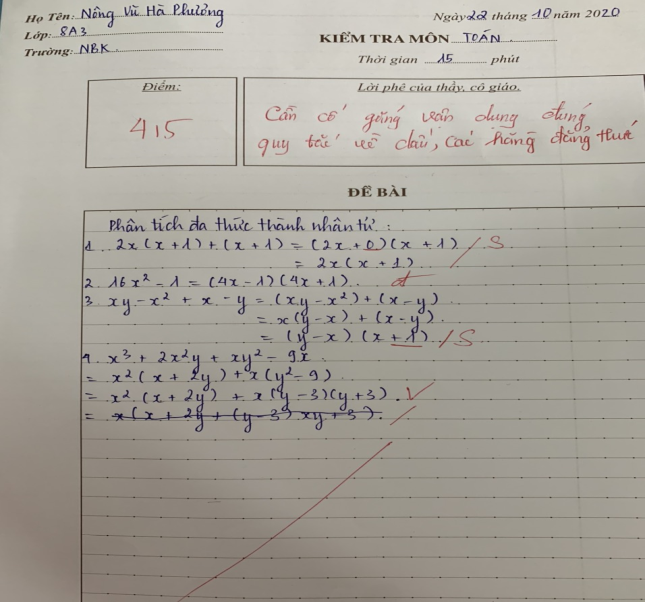 Họ Tên: Nông Vũ Hà Phương
Ngày 22 tháng 10 năm 2020
Lớp: 8A3
KIỂM TRA MÔN TOÁN
Trường: NBK
Thời gian 15 phút
Điểm:
Lời phê của thầy, cô giáo.
4,5
Cần cố gắng vận dụng đúng
quy tắc về dấu, các hằng đẳng thức
ĐỀ BÀI
Phân tích đa thức thành nhân tử:
1. 2x(x+1)+(x+1) = (2x+0)(x+1) / S
= 2x(x+1)
2. 16x² - 1 = (4x-1)(4x+1). đ
3. xy - x² + x - y = (xy - x²) + (x - y)
= x(y - x) + (x - y).
= (y - x) (x + 1) / S
4. x³ + 2x²y + xy² - 9x
= x²(x + 2y) + x(y² - 9)
= x²(x + 2y) + x(y - 3)(y + 3).
= x(x + 2y + (y - 3) xy + 3).